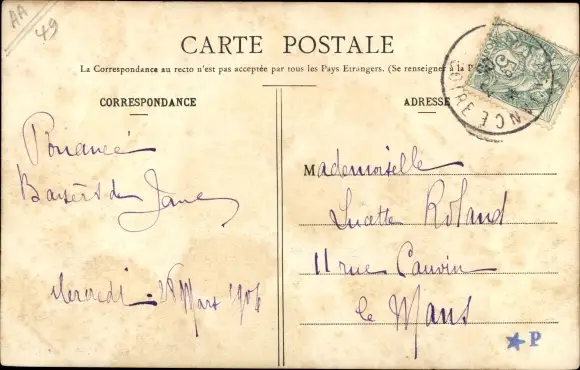 AA
49
CARTE POSTALE
La Correspondance au recto n'est pas acceptée par tous les Pays Etrangers. (Se renseigner à la P
CORRESPONDANCE
ADRESSE
Pouancé
Baisers de Jane
Mercredi - 28 Mars 1906
Mademoiselle
Lucette Roland
11 rue Cauvin
le Mans
P
5c